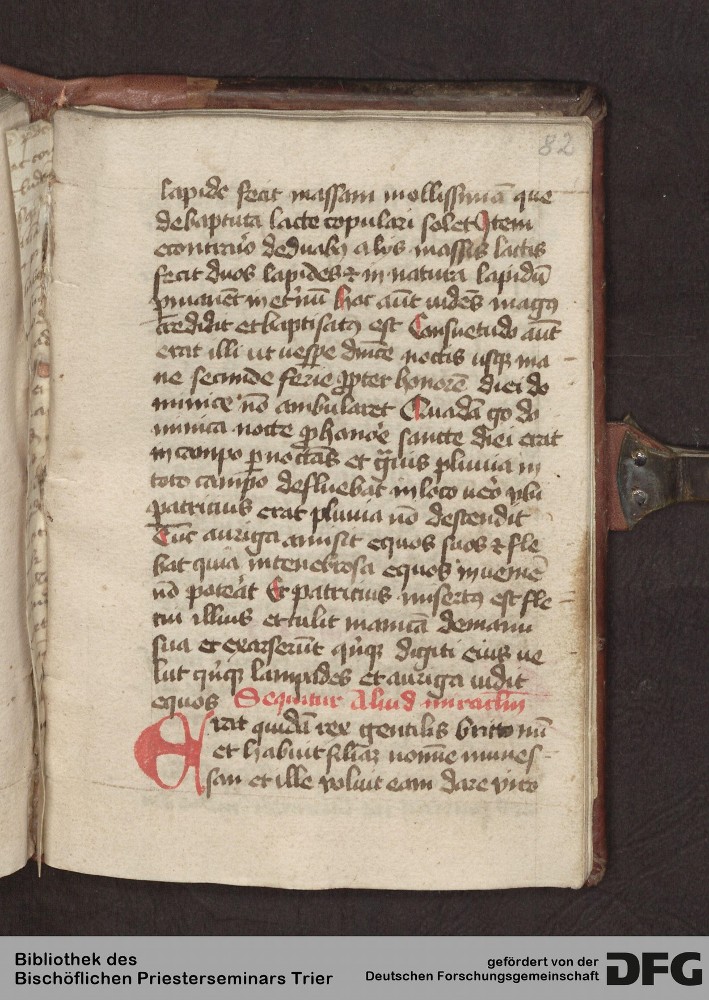 82
lapide fecit massam mollissimā que
de baptuta lacte copulari solet Item
econtrario de duabꝫ alijs massis lactis
fecit duos lapides ⁊ in natura lapidū
pmanēt in et'nū hoc aūt vidēs magꝰ
credidit et baptisatꝰ est Consuetudo aūt
erat illi ut uespe dn̄ice noctis usqꝫ ma
ne secunde ferie ꝓpter honorē diei do
minice nō ambularet Quadā go do
minica nocte ꝓ honore sancte diei erat
in campo ꝑnoctās et gͣuis pluuia in
toto campo defluebat in loco uero vbi
patricius erat pluuia nō descendit
Tūc auriga amisit equos suos ⁊ fle
bat quia in tenebrosa equos inuenie
nō poterat Et patricius misertꝰ est fle
tui illius et tulit manicā de manu
sua et exarserūt quīqꝫ digiti eius ue
lut quīqꝫ lampades et auriga uidit
equos Sequitur Aliud miraclm̄
Erat quidā rex gentilis britto nū
et habuit filiaꝫ nomine munes
san et ille voluit eam dare viro
Bibliothek des
Bischöflichen Priesterseminars Trier
gefördert von der
Deutschen Forschungsgemeinschaft
DFG